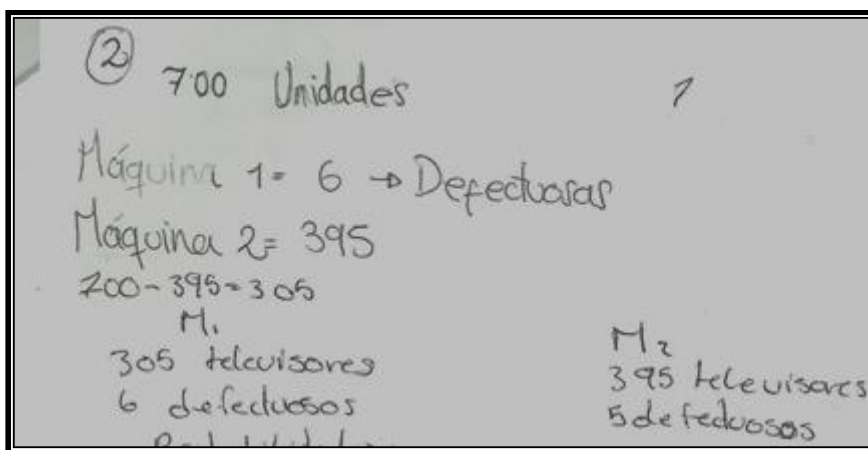 2
700 Unidades
Máquina 1= 6 → Defectuosas
Máquina 2= 395
700-395=305
M1
305 televisores
6 defectuosos
M2
395 televisores
5 defectuosos